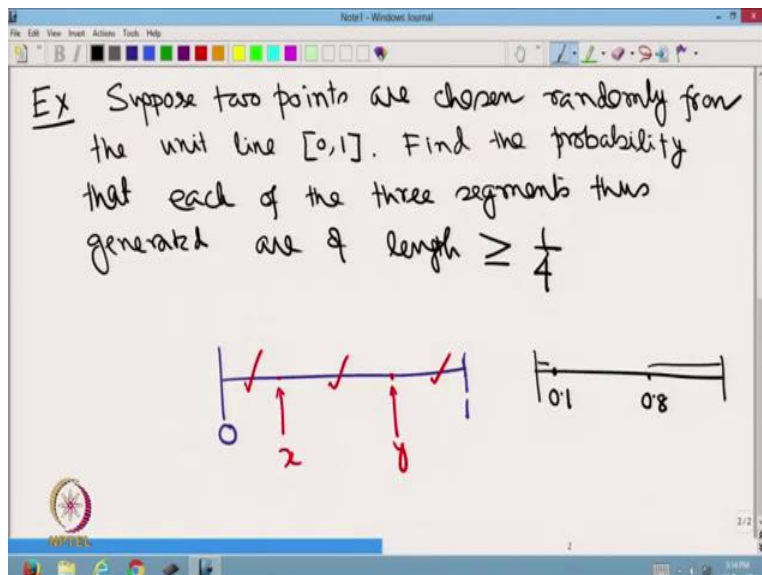 Note1 - Windows Journal
File Edit View Insert Actions Tools Help
Ex Suppose two points are chosen randomly from
the unit line [0,1]. Find the probability
that each of the three segments thus
generated are of length ≥ 1/4
0 x y 1
0.1 0.8
NPTEL
2/2
2
3:14 PM